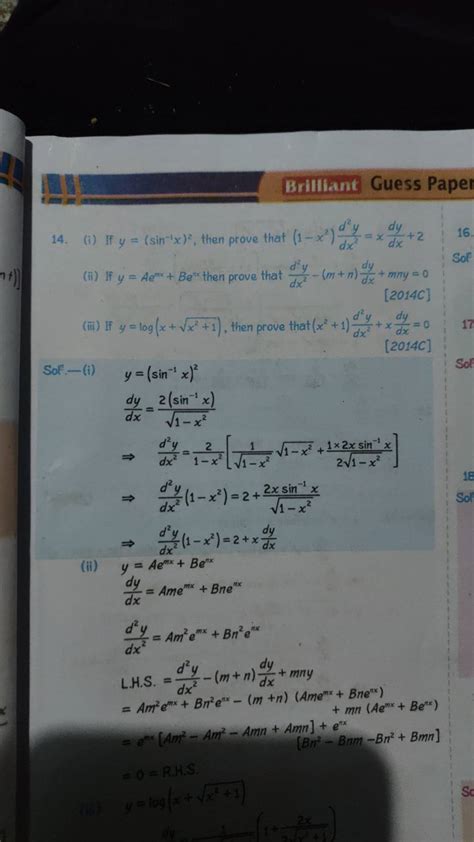 Brilliant Guess Paper
14. (i) If y = (sin⁻¹x)², then prove that (1 − x²) d²y/dx² = x dy/dx + 2
(ii) If y = Ae^mx + Be^nx then prove that d²y/dx² − (m + n) dy/dx + mny = 0
[2014C]
(iii) If y = log(x + √(x² + 1)), then prove that (x² + 1) d²y/dx² + x dy/dx = 0
[2014C]
Solⁿ.— (i) y = (sin⁻¹ x)²
dy/dx = 2(sin⁻¹ x)/√(1 − x²)
⇒ d²y/dx² = 2/(1 − x²) [1/√(1 − x²) √(1 − x²) + 1 × 2x sin⁻¹ x/2√(1 − x²)]
⇒ d²y/dx² (1 − x²) = 2 + 2x sin⁻¹ x/√(1 − x²)
⇒ d²y/dx² (1 − x²) = 2 + x dy/dx
(ii) y = Ae^mx + Be^nx
dy/dx = Ame^mx + Bne^nx
d²y/dx² = Am²e^mx + Bn²e^nx
L.H.S. = d²y/dx² − (m + n) dy/dx + mny
= Am²e^mx + Bn²e^nx − (m + n) (Ame^mx + Bne^nx)
+ mn (Ae^mx + Be^nx)
= e^mx [Am² − Am² − Amn + Amn] + e^nx
[Bn² − Bnm − Bn² + Bmn]
= 0 = R.H.S.
(iii) y = log(x + √(x² + 1))
16.
Solⁿ
17
Solⁿ
18
Solⁿ